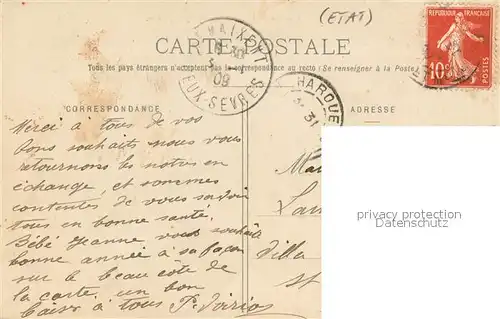 (ETAT)
CARTE POSTALE
Tous les pays étrangers n'acceptent pas la correspondance au recto (Se renseigner à la Poste)
CORRESPONDANCE
ADRESSE
MAIXENT
09
SEVRES
HARQUE
31
10c
Merci à tous de vos
bons souhaits nous vous
retournons les notres en
échange, et sommes
contentes de vous savoir
tous en bonne santé.
Bébé Jeanne vous souhaite
bonne année à sa façon
sur le beau côté de
la carte. un bon
baiser à tous
Villa
St
privacy protection
Datenschutz